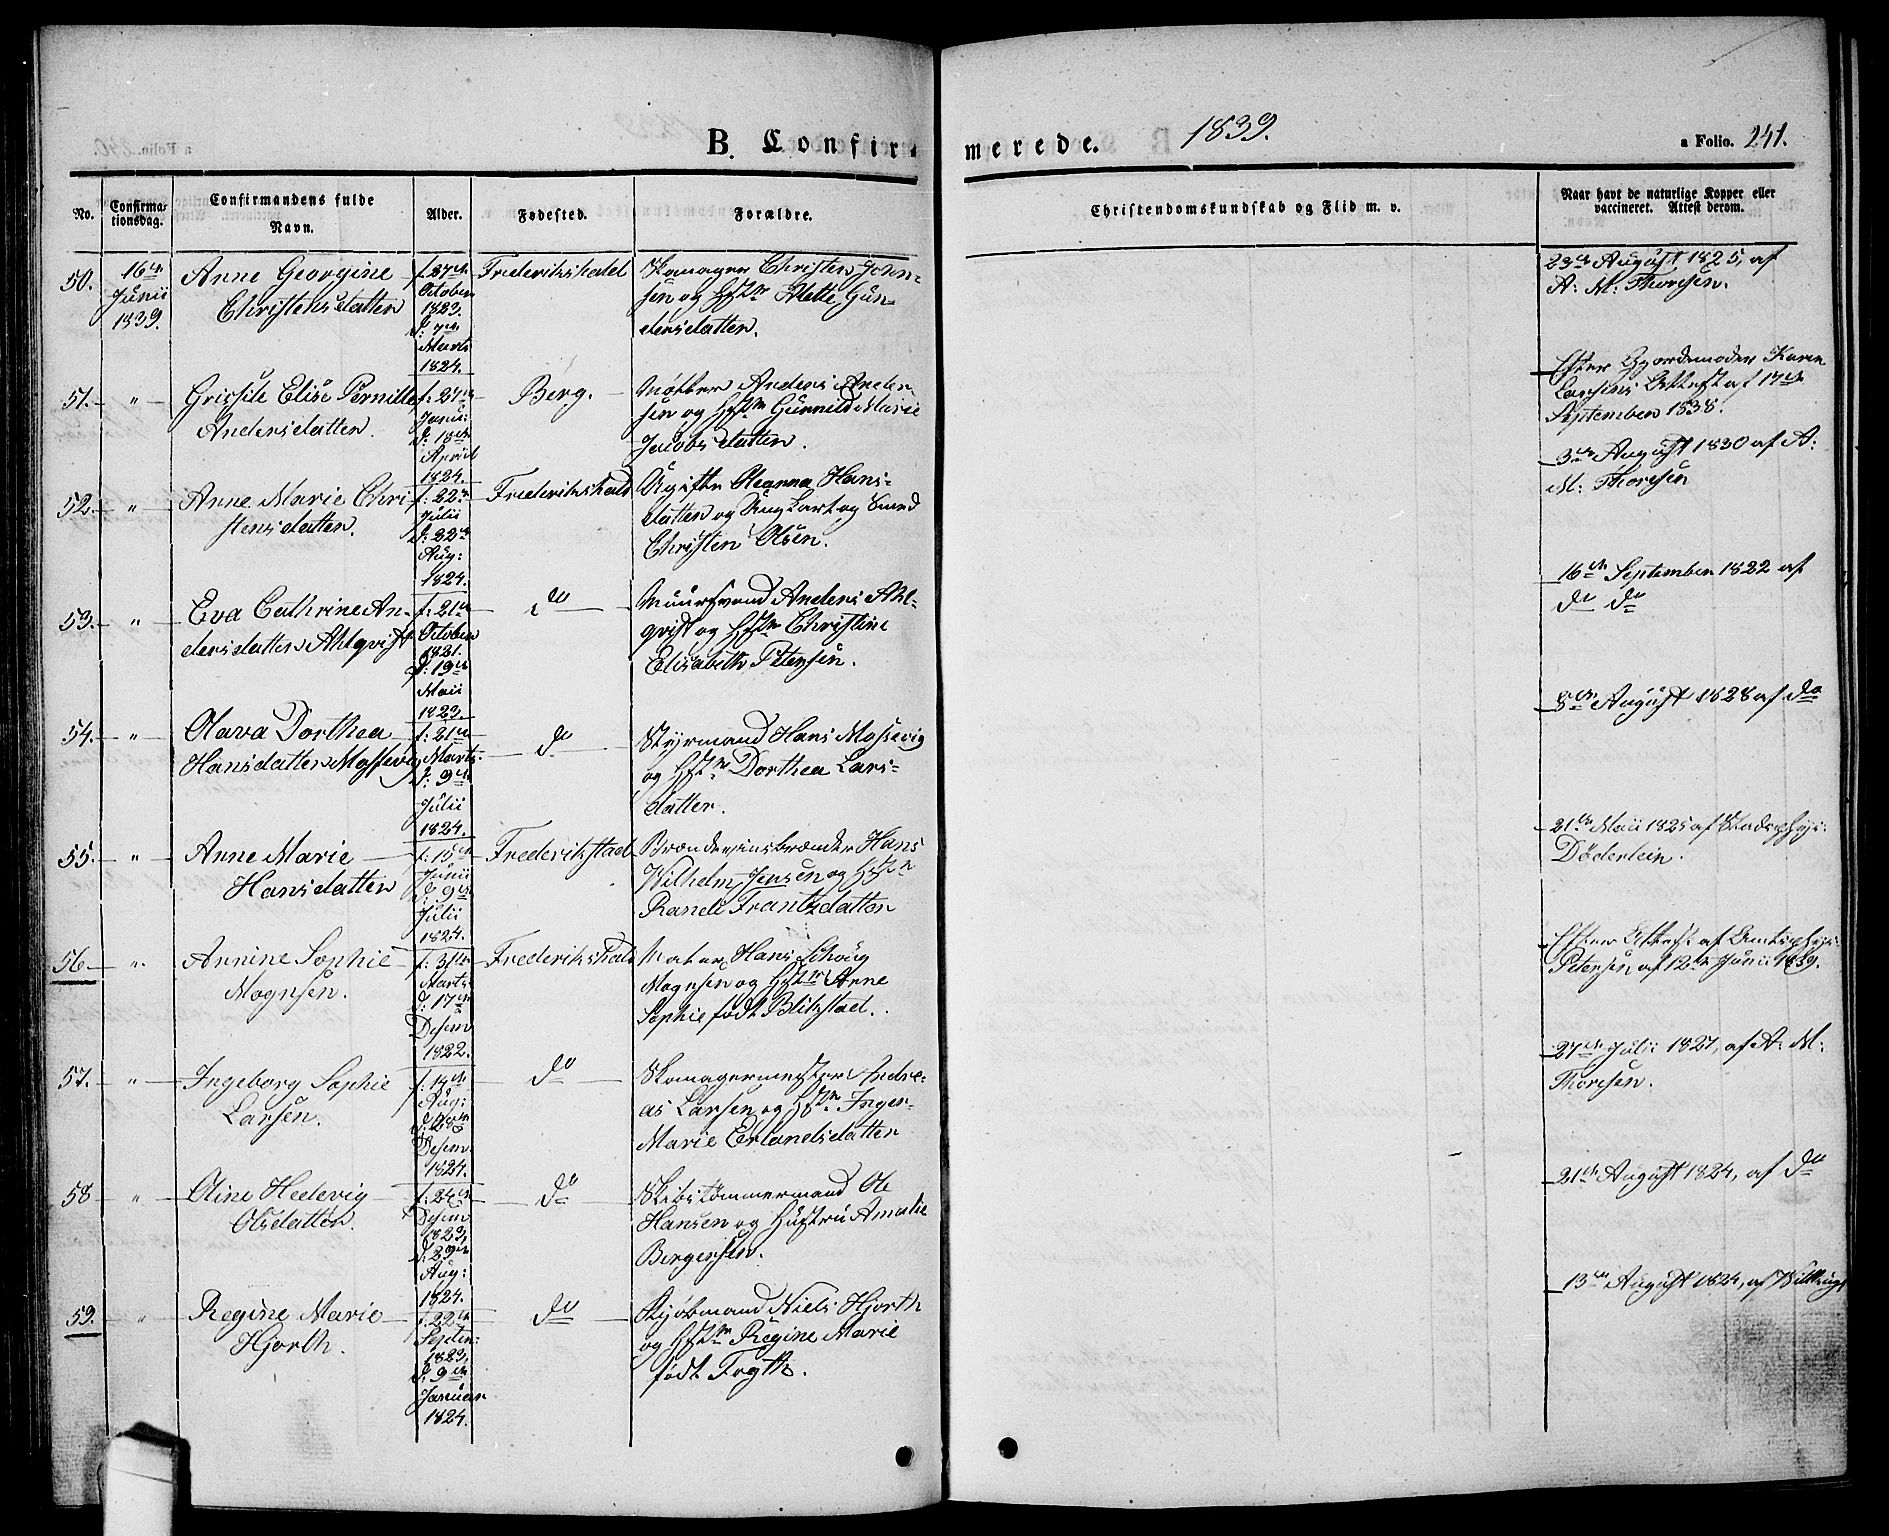 B. Confirmerede. 1839. a Folio. 241.
No. Confirmationsdag. Confirmandens fulde Navn. Alder. Fødested. Forældre. Christendomskundskab og Flid m. v. Naar havt de naturlige Kopper eller vaccineret. Attest derom.
50. 16de Junii 1839.
Anne Georgine
Christensdatter
f: 27de
October
1823.
d: 7de
Marts
1824.
Frederikshald
Skomager Christen John-
sen og Hstr Mette Gun-
dersdatter.
23de August 1825, af
A: M: Thoresen.
51. "
Grissile Elise Pernille
Andersdatter.
f: 24de
Janu:
d: 18de
April
1824.
Berg.
Møller Anders Ander-
sen og Hstr Gunnild Marie
Jacobsdatter.
Efter Gjordemoder Karen
Larsens Attest af 17de
September 1838.
52. "
Anne Marie Chri-
stensdatter.
f: 22de
Julii
d: 22de
Aug:
1824.
Frederikshald
Ugifte Oleanna Hans-
datter og Ungkarl og Smed
Christen Olsen.
3de August 1830 af A:
M: Thoresen
53. "
Eva Cathrine An-
dersdatter Ahlqvist
f: 21de
October
1821.
d: 19de
Maii
1823.
do
Muursvend Anders Ahl-
qvist og Hstr Christine
Elisabeth Petersen.
16de September 1822 af
do do
54. "
Olava Dorthea
Hansdatter Mossevig
f: 21de
Marts.
d: 9de
Julii
1824.
do
Styrmand Hans Mossevig
og Hstr Dorthea Lars-
datter.
8de August 1828 af do
55. "
Anne Marie
Hansdatter
f: 15de
Junii
d: 9de
Julii
1824.
Frederikstad
Brændeviinsbrænder Hans
Wilhelm Jensen og Hstr
Randi Frantzdatter
21de Maii 1825 af Stadsphys:
Döderlein.
56 "
Annine Sophie
Mognsen.
f: 31te
Marts
d: 17de
Desem
1822.
Frederikshald
Maler Hans Schoug
Mognsen og Hstr Anne
Sophie født Blikstad.
Efter Attest af Amtsphys:
Petersen af 12te Junii 1839.
57. "
Ingeborg Sophie
Larsen.
f: 14de
Aug:
Desem
1824.
do
Skomagermester Andre-
as Larsen og Hstr Inger
Marie Erlandsdatter
27de Julii 1827, af A: M:
Thoresen.
58 "
Oline Hedevig
Olsdatter.
f: 24de
Desem
1823,
d: 29de
Aug:
1824.
do
Skibstømmermand Ole
Hansen og Hustru Amalie
Bergersen.
21de August 1824, af do
59. "
Regine Marie
Hjorth.
f: 22de
Septem:
1823,
d: 9de
Januar
1824.
do
Kjøbmand Niels Hjorth
og Hstr Regine Marie
født Fogth.
13de August 1824, af Wittrug